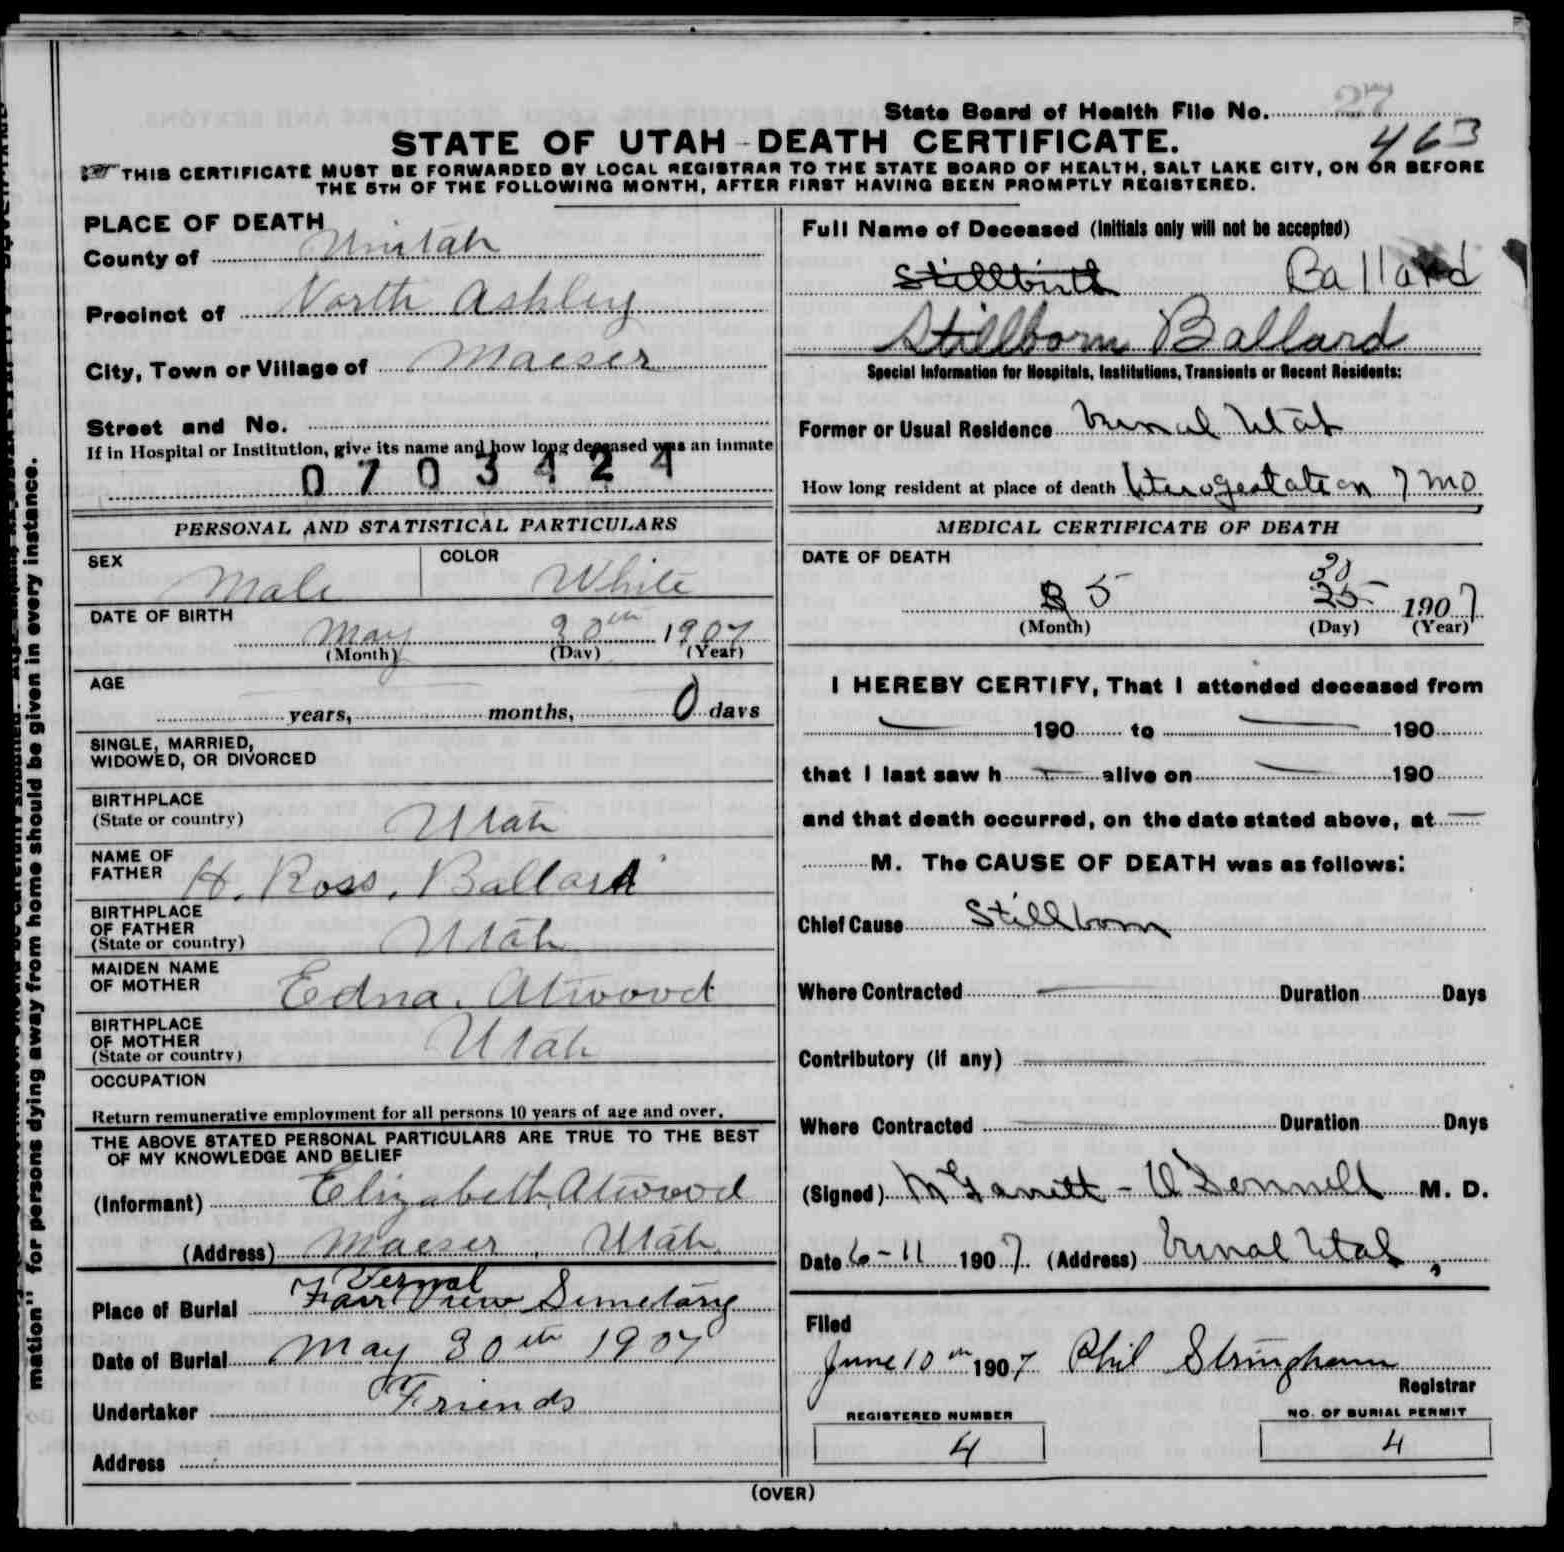 27
State Board of Health File No.
463
STATE OF UTAH - DEATH CERTIFICATE.
THIS CERTIFICATE MUST BE FORWARDED BY LOCAL REGISTRAR TO THE STATE BOARD OF HEALTH, SALT LAKE CITY, ON OR BEFORE
THE 5TH OF THE FOLLOWING MONTH, AFTER FIRST HAVING BEEN PROMPTLY REGISTERED.
PLACE OF DEATH
County of Uintah
Precinct of North Ashley
City, Town or Village of Maeser
Street and No.
If in Hospital or Institution, give its name and how long deceased was an inmate
0703424
PERSONAL AND STATISTICAL PARTICULARS
SEX Male COLOR White
DATE OF BIRTH
May 30th 1907
(Month) (Day) (Year)
AGE
years, months, 0 days
SINGLE, MARRIED,
WIDOWED, OR DIVORCED
BIRTHPLACE
(State or country) Utah
NAME OF
FATHER H. Ross. Ballard
BIRTHPLACE
OF FATHER
(State or country) Utah
MAIDEN NAME
OF MOTHER Edna. Atwood
BIRTHPLACE
OF MOTHER
(State or country) Utah
OCCUPATION
Return remunerative employment for all persons 10 years of age and over.
THE ABOVE STATED PERSONAL PARTICULARS ARE TRUE TO THE BEST
OF MY KNOWLEDGE AND BELIEF
(Informant) Elizabeth Atwood
(Address) Maeser, Utah.
Vernal
Place of Burial Fair View Simetary
Date of Burial May 30th 1907
Undertaker Friends
Address
Full Name of Deceased (Initials only will not be accepted)
Stillbirth Ballard
Stillborn Ballard
Special Information for Hospitals, Institutions, Transients or Recent Residents:
Former or Usual Residence Vernal Utah
How long resident at place of death Uterogestation 7 mo
MEDICAL CERTIFICATE OF DEATH
DATE OF DEATH
30
5 25 1907
(Month) (Day) (Year)
I HEREBY CERTIFY, That I attended deceased from
190 to 190
that I last saw h alive on 190
and that death occurred, on the date stated above, at
M. The CAUSE OF DEATH was as follows:
Chief Cause Stillborn
Where Contracted Duration Days
Contributory (if any)
Where Contracted Duration Days
(Signed) M. D.
Date 6-11 1907 (Address) Vernal Utah,
Filed
June 10th 1907 Phil Stringham
Registrar
REGISTERED NUMBER
4
NO. OF BURIAL PERMIT
4
(OVER)
mation" for persons dying away from home should be given in every instance.